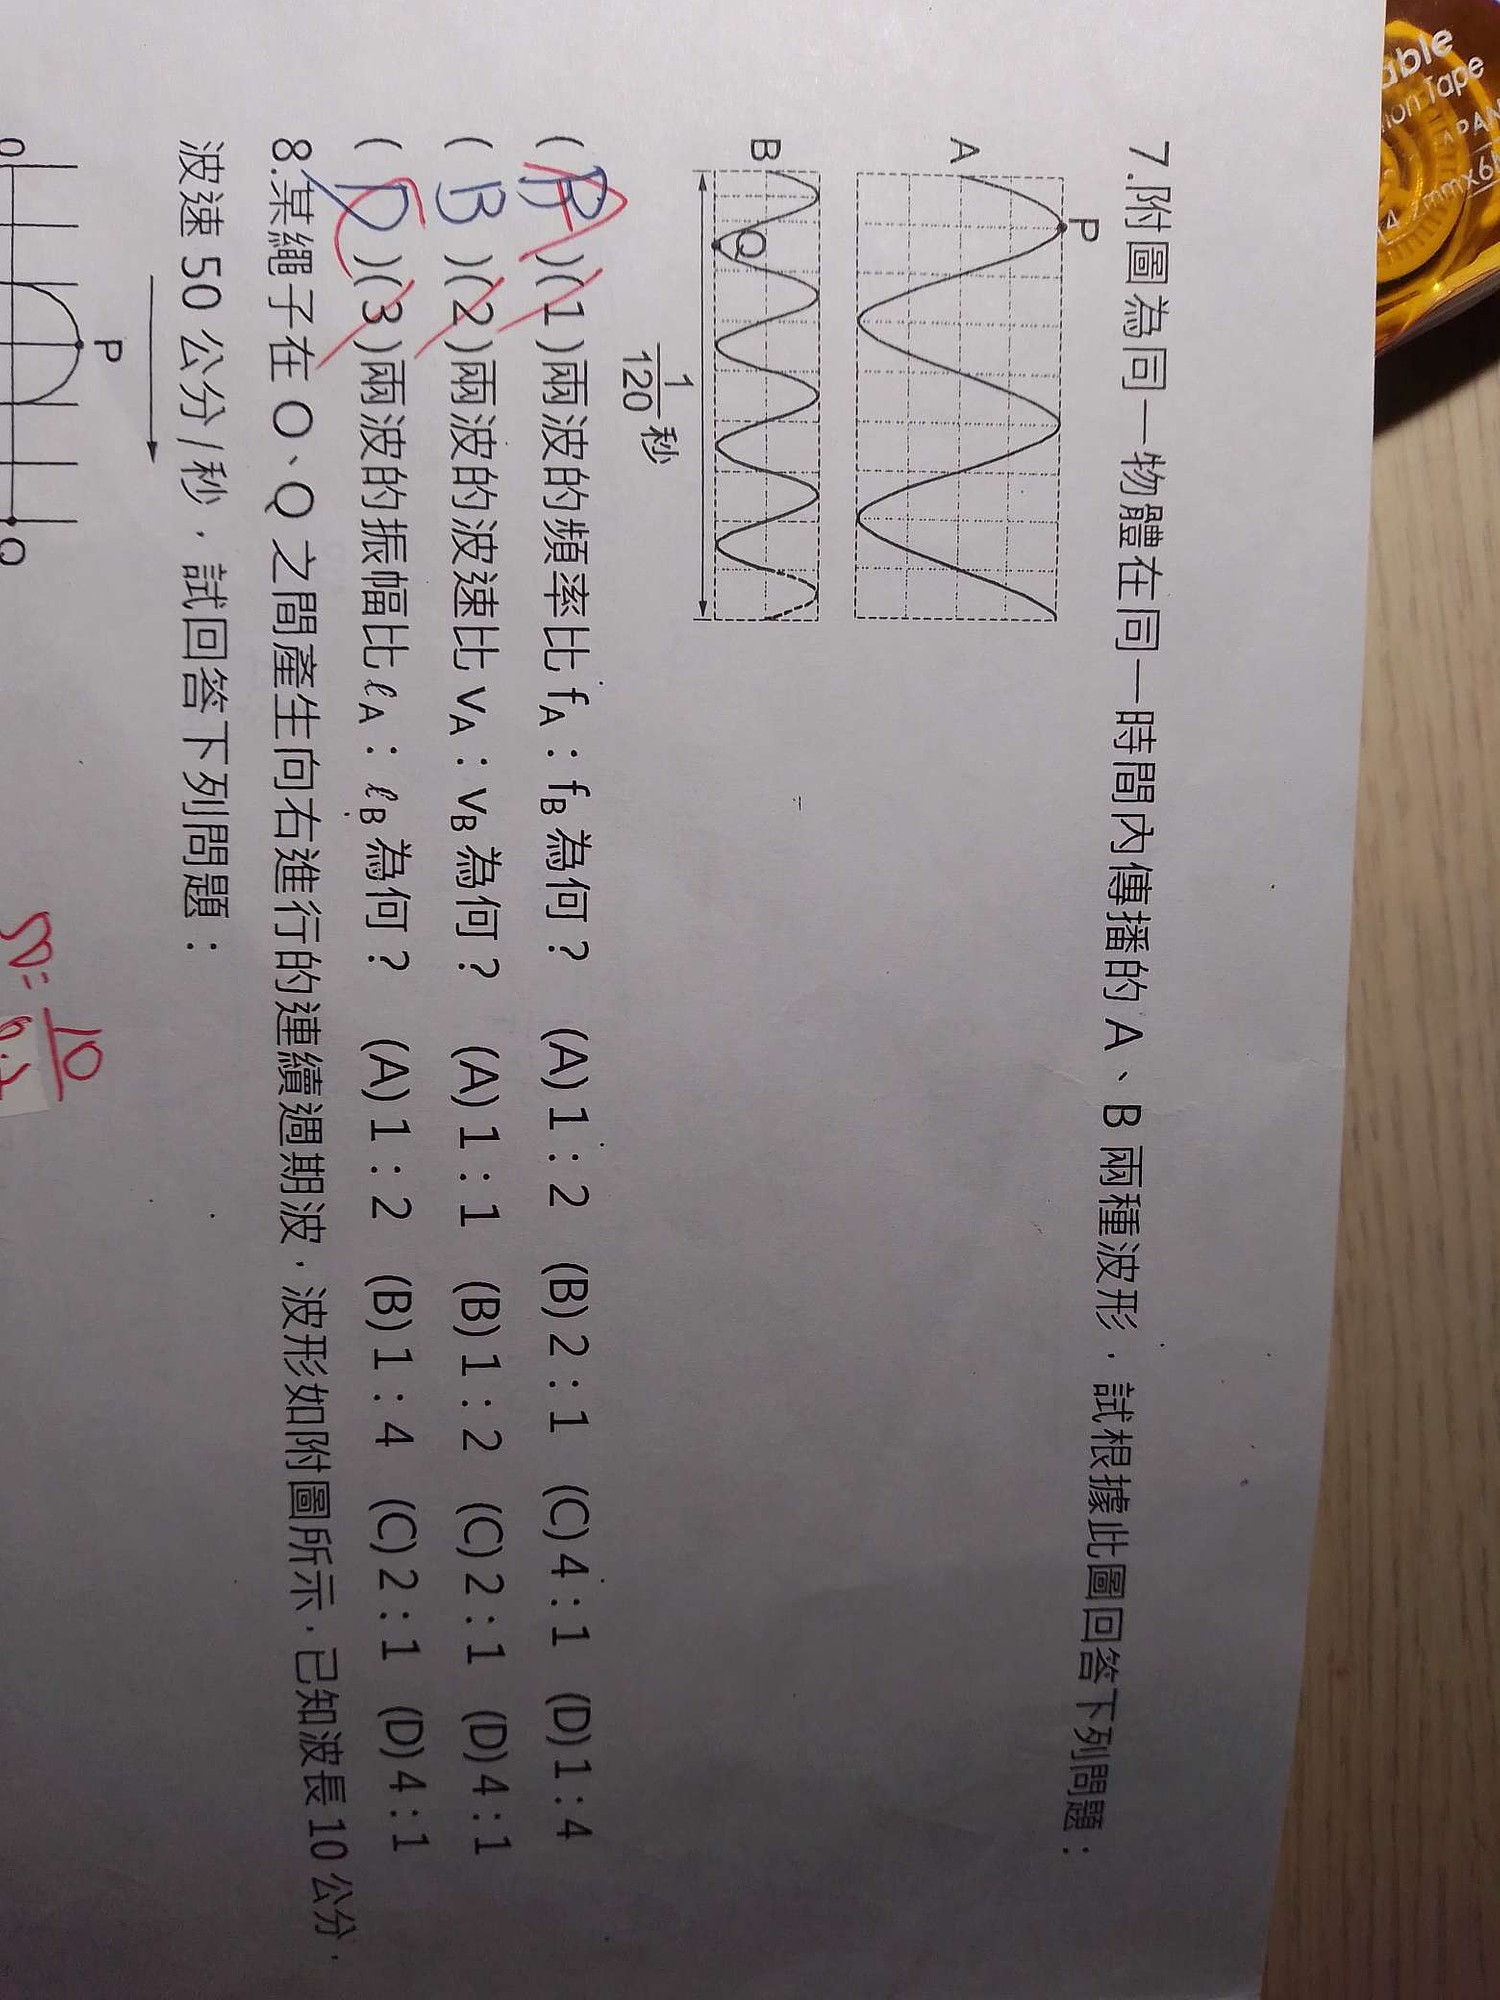 able
ion Tape
APAN
mmx6
7.附圖為同一物體在同一時間內傳播的 A、B 兩種波形，試根據此圖回答下列問題：
P
A
B
Q
1/120 秒
( A )(1)兩波的頻率比 fA：fB 為何？ (A)1：2 (B)2：1 (C)4：1 (D)1：4
( B )(2)兩波的波速比 vA：vB 為何？ (A)1：1 (B)1：2 (C)2：1 (D)4：1
( D )(3)兩波的振幅比 ℓA：ℓB 為何？ (A)1：2 (B)1：4 (C)2：1 (D)4：1
8.某繩子在 O、Q 之間產生向右進行的連續週期波，波形如附圖所示，已知波長 10 公分，
波速 50 公分/秒，試回答下列問題：
P
O
Q
10